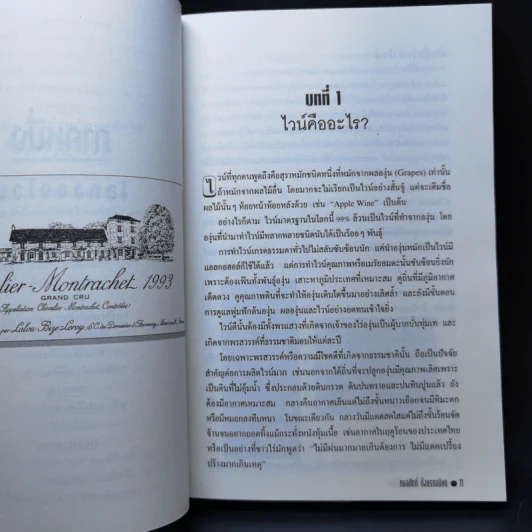 ภาคหนึ่ง
lier-Montrachet 1993
GRAND CRU
Appellation Chevalier-Montrachet Contrôlée
par Lalou-Bize-Leroy
บทที่ 1
ไวน์คืออะไร?
ไวน์ที่ทุกคนพูดถึงคือสุราหมักชนิดหนึ่งที่หมักจากผลองุ่น (Grapes) เท่านั้น
ถ้าหมักจากผลไม้อื่น โดยมากจะไม่เรียกเป็นไวน์อย่างสั้นๆ แต่จะเติมชื่อ
ผลไม้นั้นๆ ห้อยหน้าห้อยหลังด้วย เช่น “Apple Wine” เป็นต้น
อย่างไรก็ตาม ไวน์มาตรฐานในโลกนี้ 99% ล้วนเป็นไวน์ที่ทำจากองุ่น โดย
องุ่นที่นำมาทำไวน์มีหลากหลายชนิดนับได้เป็นร้อยๆ พันธุ์
การทำไวน์เกรดธรรมดาทั่วไปไม่สลับซับซ้อนนัก แค่นำองุ่นหมักเป็นไวน์มี
แอลกอฮอล์ก็ใช้ได้แล้ว แต่การทำไวน์คุณภาพหรือเมรัยอมตะนั้นซับซ้อนยิ่งนัก
เพราะต้องเฟ้นทั้งพันธุ์องุ่น เสาะหาภูมิประเทศที่เหมาะสม ดูถิ่นที่มีภูมิอากาศ
เด็ดดวง ดูคุณภาพดินที่จะทำให้องุ่นเติบโตขึ้นมาอย่างเลิศล้ำ และยังมีขั้นตอน
การดูแลฟูมฟักต้นองุ่น ผลองุ่นและไวน์อย่างอดทนเข้าใจยิ่ง
ไวน์ดีนั้นต้องมีทั้งพรแสวงที่เกิดจากเจ้าของไร่องุ่นเป็นผู้บากบั่นทุ่มเท และ
เกิดจากพรสวรรค์ที่ธรรมชาติมอบให้แต่ละปี
โดยเฉพาะพรสวรรค์หรือความมีโชคดีที่เกิดจากธรรมชาตินั้น ถือเป็นปัจจัย
สำคัญต่อการผลิตไวน์มาก เช่นนอกจากได้ดินที่จะปลูกองุ่นมีคุณภาพเลิศเพราะ
เป็นดินที่ไม่อุ้มน้ำ ซึ่งประกอบด้วยดินกรวด ดินปนทรายและปนหินปูนแล้ว ยัง
ต้องมีอากาศเหมาะสม กลางคืนอากาศเย็นแต่ไม่ถึงขั้นหนาวเยือกจนมีหิมะตก
หรือมีหมอกลงทึบหนา ในขณะเดียวกัน กลางวันมีแดดสดใสแต่ไม่ถึงขั้นร้อนจัด
จ้านจนอยากถอดทิ้งแม้กระทั่งหนังหุ้มเนื้อ เช่นอากาศในฤดูร้อนของประเทศไทย
หรือเป็นอย่างที่ชาวไร่มักพูดว่า “ไม่มีฝนมากมายเกินต้องการ ไม่มีแดดเปรี้ยง
ปร้างมากเกินเหตุ”
11